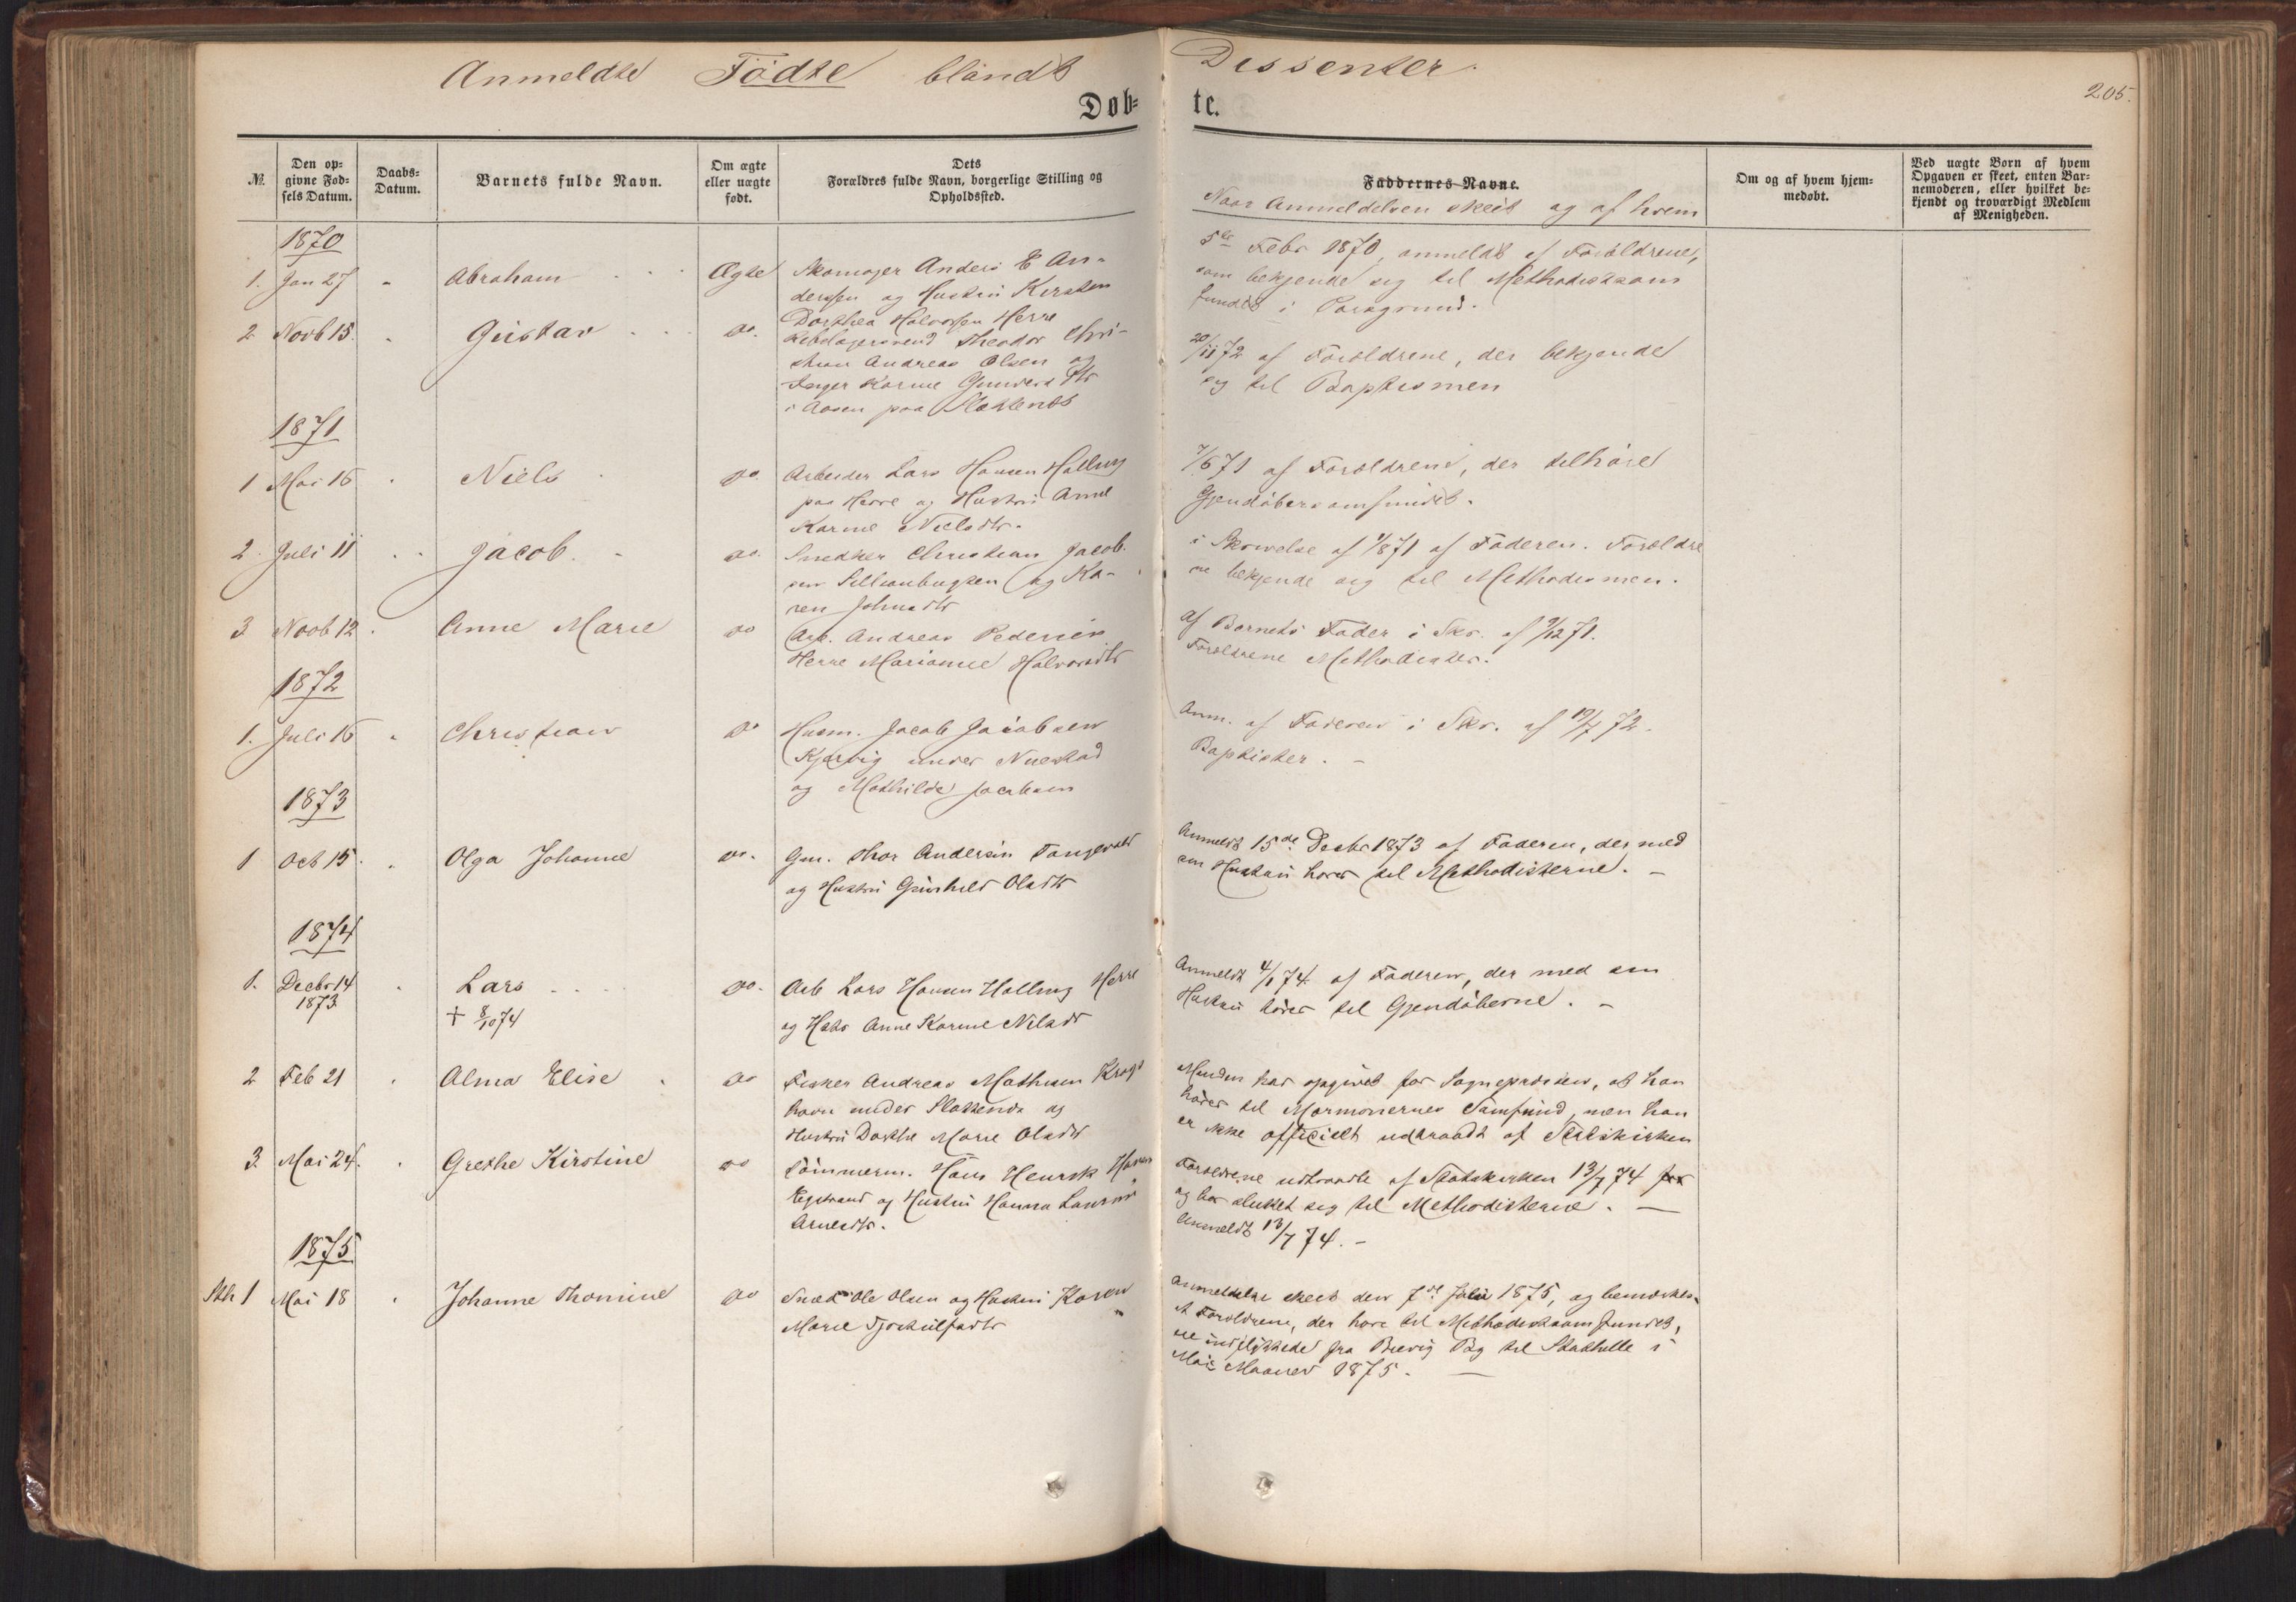 Anmeldte Fødte blandt Dissenter.
205.
Døb= te.
№.
Den op=
givne Fød=
sels Datum.
Daabs=
Datum.
Barnets fulde Navn.
Om ægte
eller uægte
født.
Dets
Forældres fulde Navn, borgerlige Stilling og
Opholdssted.
Faddernes Navne.
Naar Anmeldelsen skeet og af hvem
Om og af hvem hjem=
medøbt.
Ved uægte Børn af hvem
Opgaven er skeet, enten Bar=
nemoderen, eller hvilket be=
kjendt og troværdigt Medlem
af Menigheden.
1870
1. Jan 27 " Abraham Ægte
Skomager Anders E An-
derssen og Hustru Kirsten
Dorthea Halvorsen Herre
5te Febr 1870, anmeldt af Forældrene,
som bekjende sig til Methodistsam
fundet i Porsgrund.
2 Novb 15. " Gustav do.
Theodor Chri-
Andreas Olsen og
Inger Karine
i Aasen paa
20/11 72 af Forældrene, der bekjende
sig til Baptismen
1871
1 Mai 16 " Niels do.
Arbeider Lars Hansen Halling
paa Herre og Hustru Anne
Karine Nielsdtr.
7/6 71 af Forældrene, der tilhøre
Gjendøbersamfundet.
2. Juli 11 " Jacob. do.
Snedker Christian Jacob-
sen og Ka-
ren Johnsdtr
i Skrivelse af 1/8 71 af Faderen. Forældre
ne bekjende sig til Methodismen.
3 Novb 12 " Anne Marie do
Arb. Andreas Pedersen
Herre Marianne Halvorsdtr
Af Barnets Fader i Skr. af 9/12 71.
Forældrene Methodister.
1872
1. Juli 16 " Christian do
Husm. Jacob Jacobsen
Kjørvig under Nuestad
og Mathilde Jacobsen
Anm. af Faderen i Skr. af 19/7 72.
Baptister. -
1873
1 Oct 15. " Olga Johanne do.
Gm. Thor Andersen Tangevald
og Hustru Gunhild Olsdtr
Anmeldt 15de Decbr 1873 af Faderen, der med
sin Hustru hører til Methodisterne. -
1874
1. Decbr 14
1873 " Lars
+ 8/10 74 do.
Arb Lars Hansen Halling Herre
og Hstr Anne Karine Nilsdtr
Anmeldt 4/1 74 af Faderen, der med sin
Hustru hører til Gjendøberne. -
2 Feb 21 " Alma Elise do
Fisker Andreas Mathisen Krogs
havn under
Hustru Dorthe Marie Olsdtr
Manden har opgivet for Sognepræsten, at han
hører til Mormonernes Samfund, men han
er ikke officielt udtraadt af Statskirken
3. Mai 24. " Grethe Kirstine do
Tømmerm. Hans Henrik Hansen
og Hustru Hanna
Arnesdtr.
Forældrene udtraadte af Statskirken 13/7 74
og har sluttet sig til Methodisterne. -
Anmeldt 13/7 74. -
1875
Sth 1 Mai 18 " Johanne Thomine do
Snedk Ole Olsen og Hustru Karen
Marie
Anmeldelse skeet den 7de Juli 1875, og bemærkes
at Forældrene, der høre til Methodistsamfundet,
ere indflyttede fra Brevig By til Stathelle i
Mai Maaned 1875. -